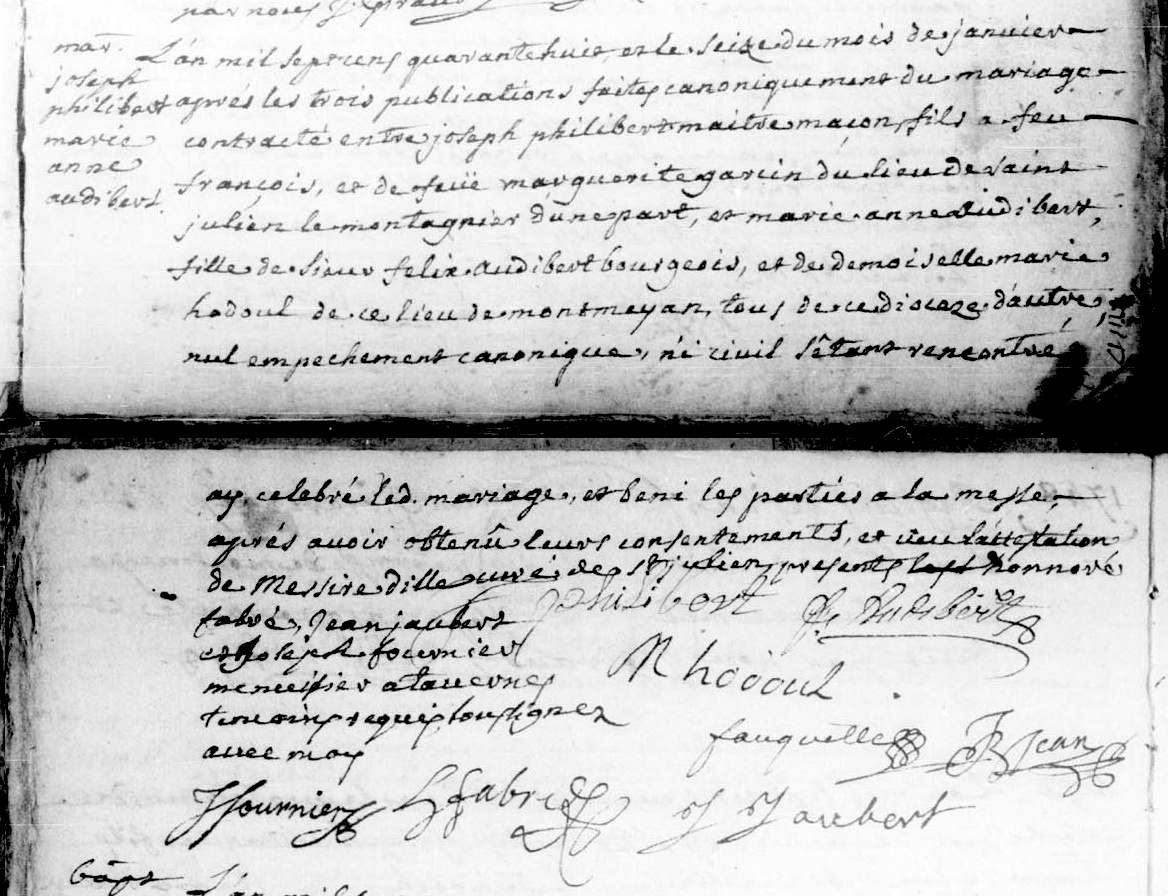 par nous
mar.
joseph
philibert
marie
anne
audibert
L'an mil sept cens quarante huit, et le seize du mois de janvier
aprés les trois publications faites canoniquement du mariage
contracté entre joseph philibert maitre maçon, fils a feu
françois, et de feüe marguerite garcin du lieu de saint
julien le montagnier d'une part, et marie anne audibert,
fille de sieur felix audibert bourgeois, et de demoiselle marie
hodoul de ce lieu de montmeyan, tous de ce dioceze d'autre,
nul empechement canonique, ni civil s'êtant rencontré
ay celebré led. mariage, et beni les parties a la messe,
aprés avoir obtenû leurs consentements, et veu l'attestation
de Messire dille curé de st julien, presents honnoré
fabre, Jean jaubert
et joseph fournier
menuisier a tavernes
temoins requis soussignez
avec moy
J Philibert
f. Audibert
M hodoul
fauquette
B Jean
J fournier
h fabre
J Jaubert
bapt
L'an mil